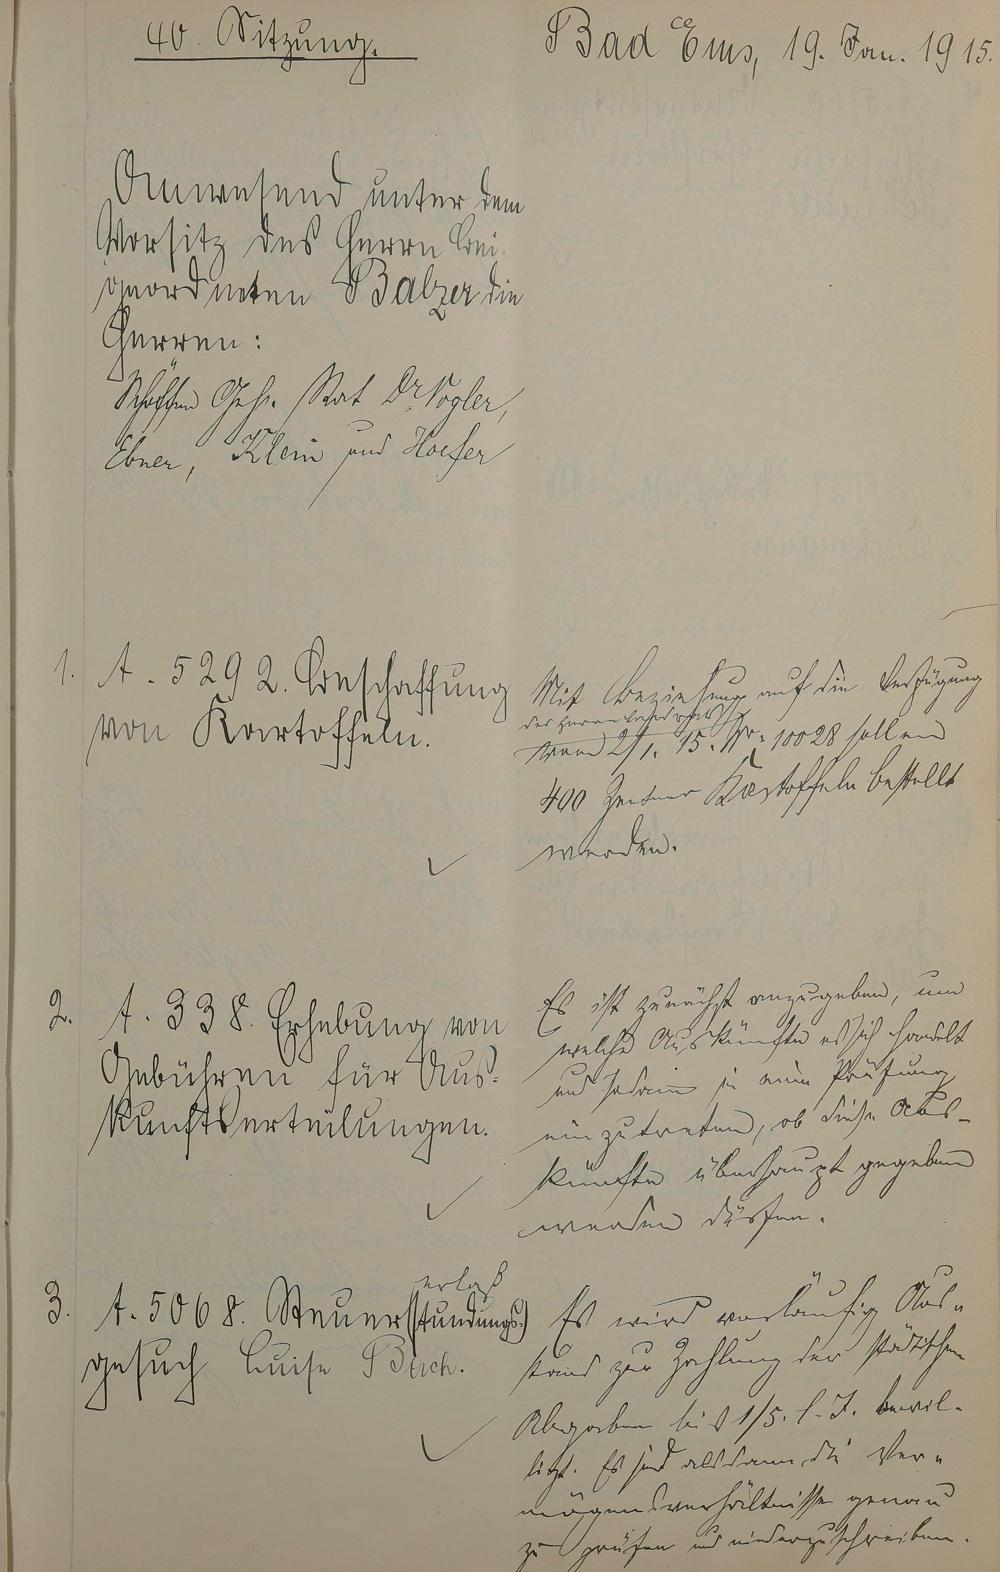 40. Sitzung.
Bad Ems, 19. Jan. 1915.
Anwesend unter dem
Vorsitz des Herrn Bei-
geordneten Balzer die
Herren:
Schöffen Geh. Rat Dr. Vogler,
Ebner, Klein und Hoefer
1. A. 5292. Beschaffung
von Kartoffeln.
Mit Beziehung auf die Verfügung
des Herrn Landrats
vom 2/1. 15. No. 10028 sollen
400 Zentner Kartoffeln bestellt
werden.
2. A. 338. Erhebung von
Gebühren für Aus-
kunftserteilungen.
Es ist zunächst anzugeben, um
welche Auskünfte es sich handelt
und sodann in eine Prüfung
einzutreten, ob diese Aus-
künfte überhaupt gegeben
werden dürfen.
erlaß
3. A. 5068. Steuer(stundungs-)
gesuch Luise Buch.
Es wird vorläufig Aus-
stand zur Zahlung der städtischen
Abgaben bis 1/5. l. J. bewil-
ligt. Es sind alsdann die Ver-
mögensverhältnisse genau
zu prüfen und niederzuschreiben.